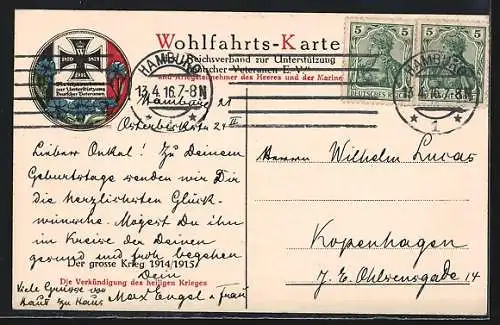 Wohlfahrts-Karte
Reichsverband zur Unterstützung
Deutscher Veteranen E. V.
und Kriegsteilnehmer des Heeres und der Marine
1870 1871
1914
zur Unterstützung
Deutscher Veteranen
HAMBURG
13.4.16.7-8N
* 1 *
HAMBURG
13.4.16.7-8N
* 1 *
5 5
5 5
DEUTSCHES REICH
Hamburg 21
Osterbekstr 24 II
Lieber Onkel! Zu Deinem
Geburtstage senden wir Dir
die herzlichsten Glück-
wünsche. Mögest Du ihn
im Kreise der Deinen
gesund und froh begehen
Der grosse Krieg 1914/1915
Dein
Die Verkündigung des heiligen Krieges
Viele Grüsse von
Haus zu Haus
Max Engel u Frau
Herrn Wilhelm Lucas
Kopenhagen
J. E. Ohlsensgade 14